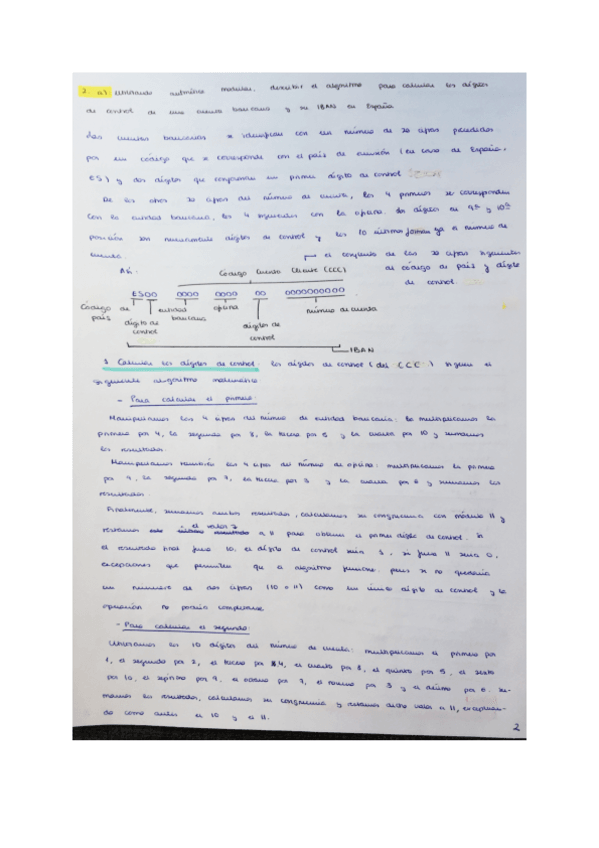 2. a) Utilizando aritmética modular, describir el algoritmo para calcular los dígitos
de control de una cuenta bancaria y su IBAN en España
Las cuentas bancarias se identifican con un número de 20 cifras precedidos
por un código que se corresponde con el país de emisión (en caso de España,
ES) y dos dígitos que conforman un primer dígito de control
De las otras 20 cifras del número de cuenta, las 4 primeras se corresponden
con la entidad bancaria, las 4 siguientes con la oficina. Los dígitos en 9ª y 10ª
posición son nuevamente dígitos de control y los 10 últimos forman ya el número de
cuenta.
el conjunto de las 20 cifras siguientes
al código de país y dígito
de control.
Así:
Código Cuenta Cliente (CCC)
ES00 0000 0000 00 0000000000
Código de país
dígito de control
entidad bancaria
oficina
dígitos de control
número de cuenta
IBAN
1. Calcular los dígitos de control: los dígitos de control (del CCC) siguen el
siguiente algoritmo matemático
- Para calcular el primero:
Manipulamos las 4 cifras del número de entidad bancaria: la multiplicamos la
primera por 4, la segunda por 8, la tercera por 5 y la cuarta por 10 y sumamos
los resultados.
Manipulamos también las 4 cifras del número de oficina: multiplicamos la primera
por 9, la segunda por 7, la tercera por 3 y la cuarta por 6 y sumamos los
resultados.
Finalmente, sumamos ambos resultados, calculamos su congruencia con módulo 11 y
restamos el valor a 11 para obtener el primer dígito de control. Si
el resultado final fuera 10, el dígito de control será 1, si fuera 11 será 0,
excepciones que permiten que el algoritmo funcione pues si no quedaría
un número de dos cifras (10 o 11) como un único dígito de control y la
operación no podría completarse.
- Para calcular el segundo:
Utilizamos los 10 dígitos del número de cuenta: multiplicamos el primero por
1, el segundo por 2, el tercero por 4, el cuarto por 8, el quinto por 5, el sexto
por 10, el séptimo por 9, el octavo por 7, el noveno por 3 y el décimo por 6. Su-
mamos los resultados, calculamos su congruencia y restamos dicho valor a 11, exceptuan-
do como antes el 10 y el 11.
2